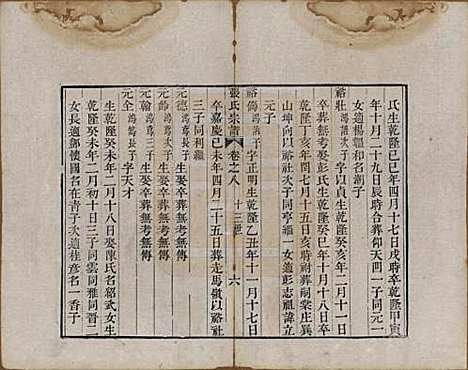 氏生乾隆己巳年四月十七日戌時卒乾隆甲寅
年十月二十九日辰時合葬仰天凹一子同元一
女適楊繼和名潮子
裕壯 字以貞生乾隆癸亥年二月十一日
卒葬無考娶彭氏生乾隆癸巳年十月十八日
丁乾隆辛亥年閏七月十五日亥時祔葬嗣棠庄異
山坤向以裕社次子同亨繼一女適彭志祖諱立
元子
裕傷 字正明生乾隆乙丑年十一月十七日
張氏宗譜
卷之八
十三世
六
卒嘉慶己未年四月二十五日葬走馬嶺以裕社
三子同利繼
元德 鴻 長子生娶卒葬無考無傳
元齡 鴻 次子生娶卒葬無考無傳
元翰 鴻 長子生娶卒葬無考無傳
元全 鴻 子字天才
乾隆癸未年二月十八日娶陳氏名紹武女生
乾隆癸未年二月初十日三子同雲同雅同晉二
女長適鄧懷國名在青子次適桂彥名一香子